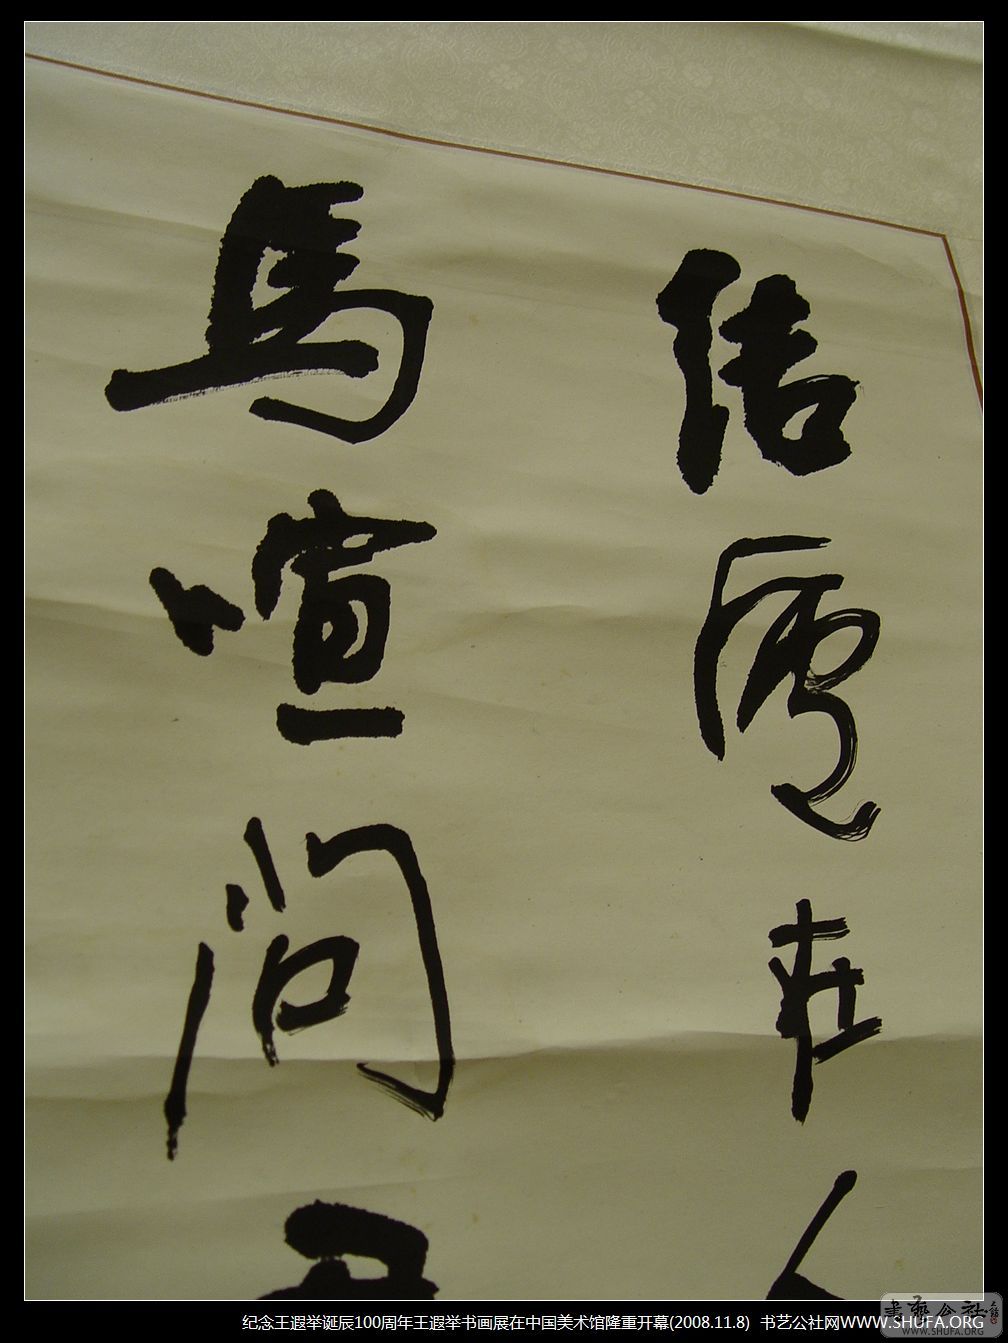 结庐在人
马喧问君
纪念王遐举诞辰100周年王遐举书画展在中国美术馆隆重开幕(2008.11.8) 书艺公社网WWW.SHUFA.ORG
書藝公社
WWW.SHUFA.ORG